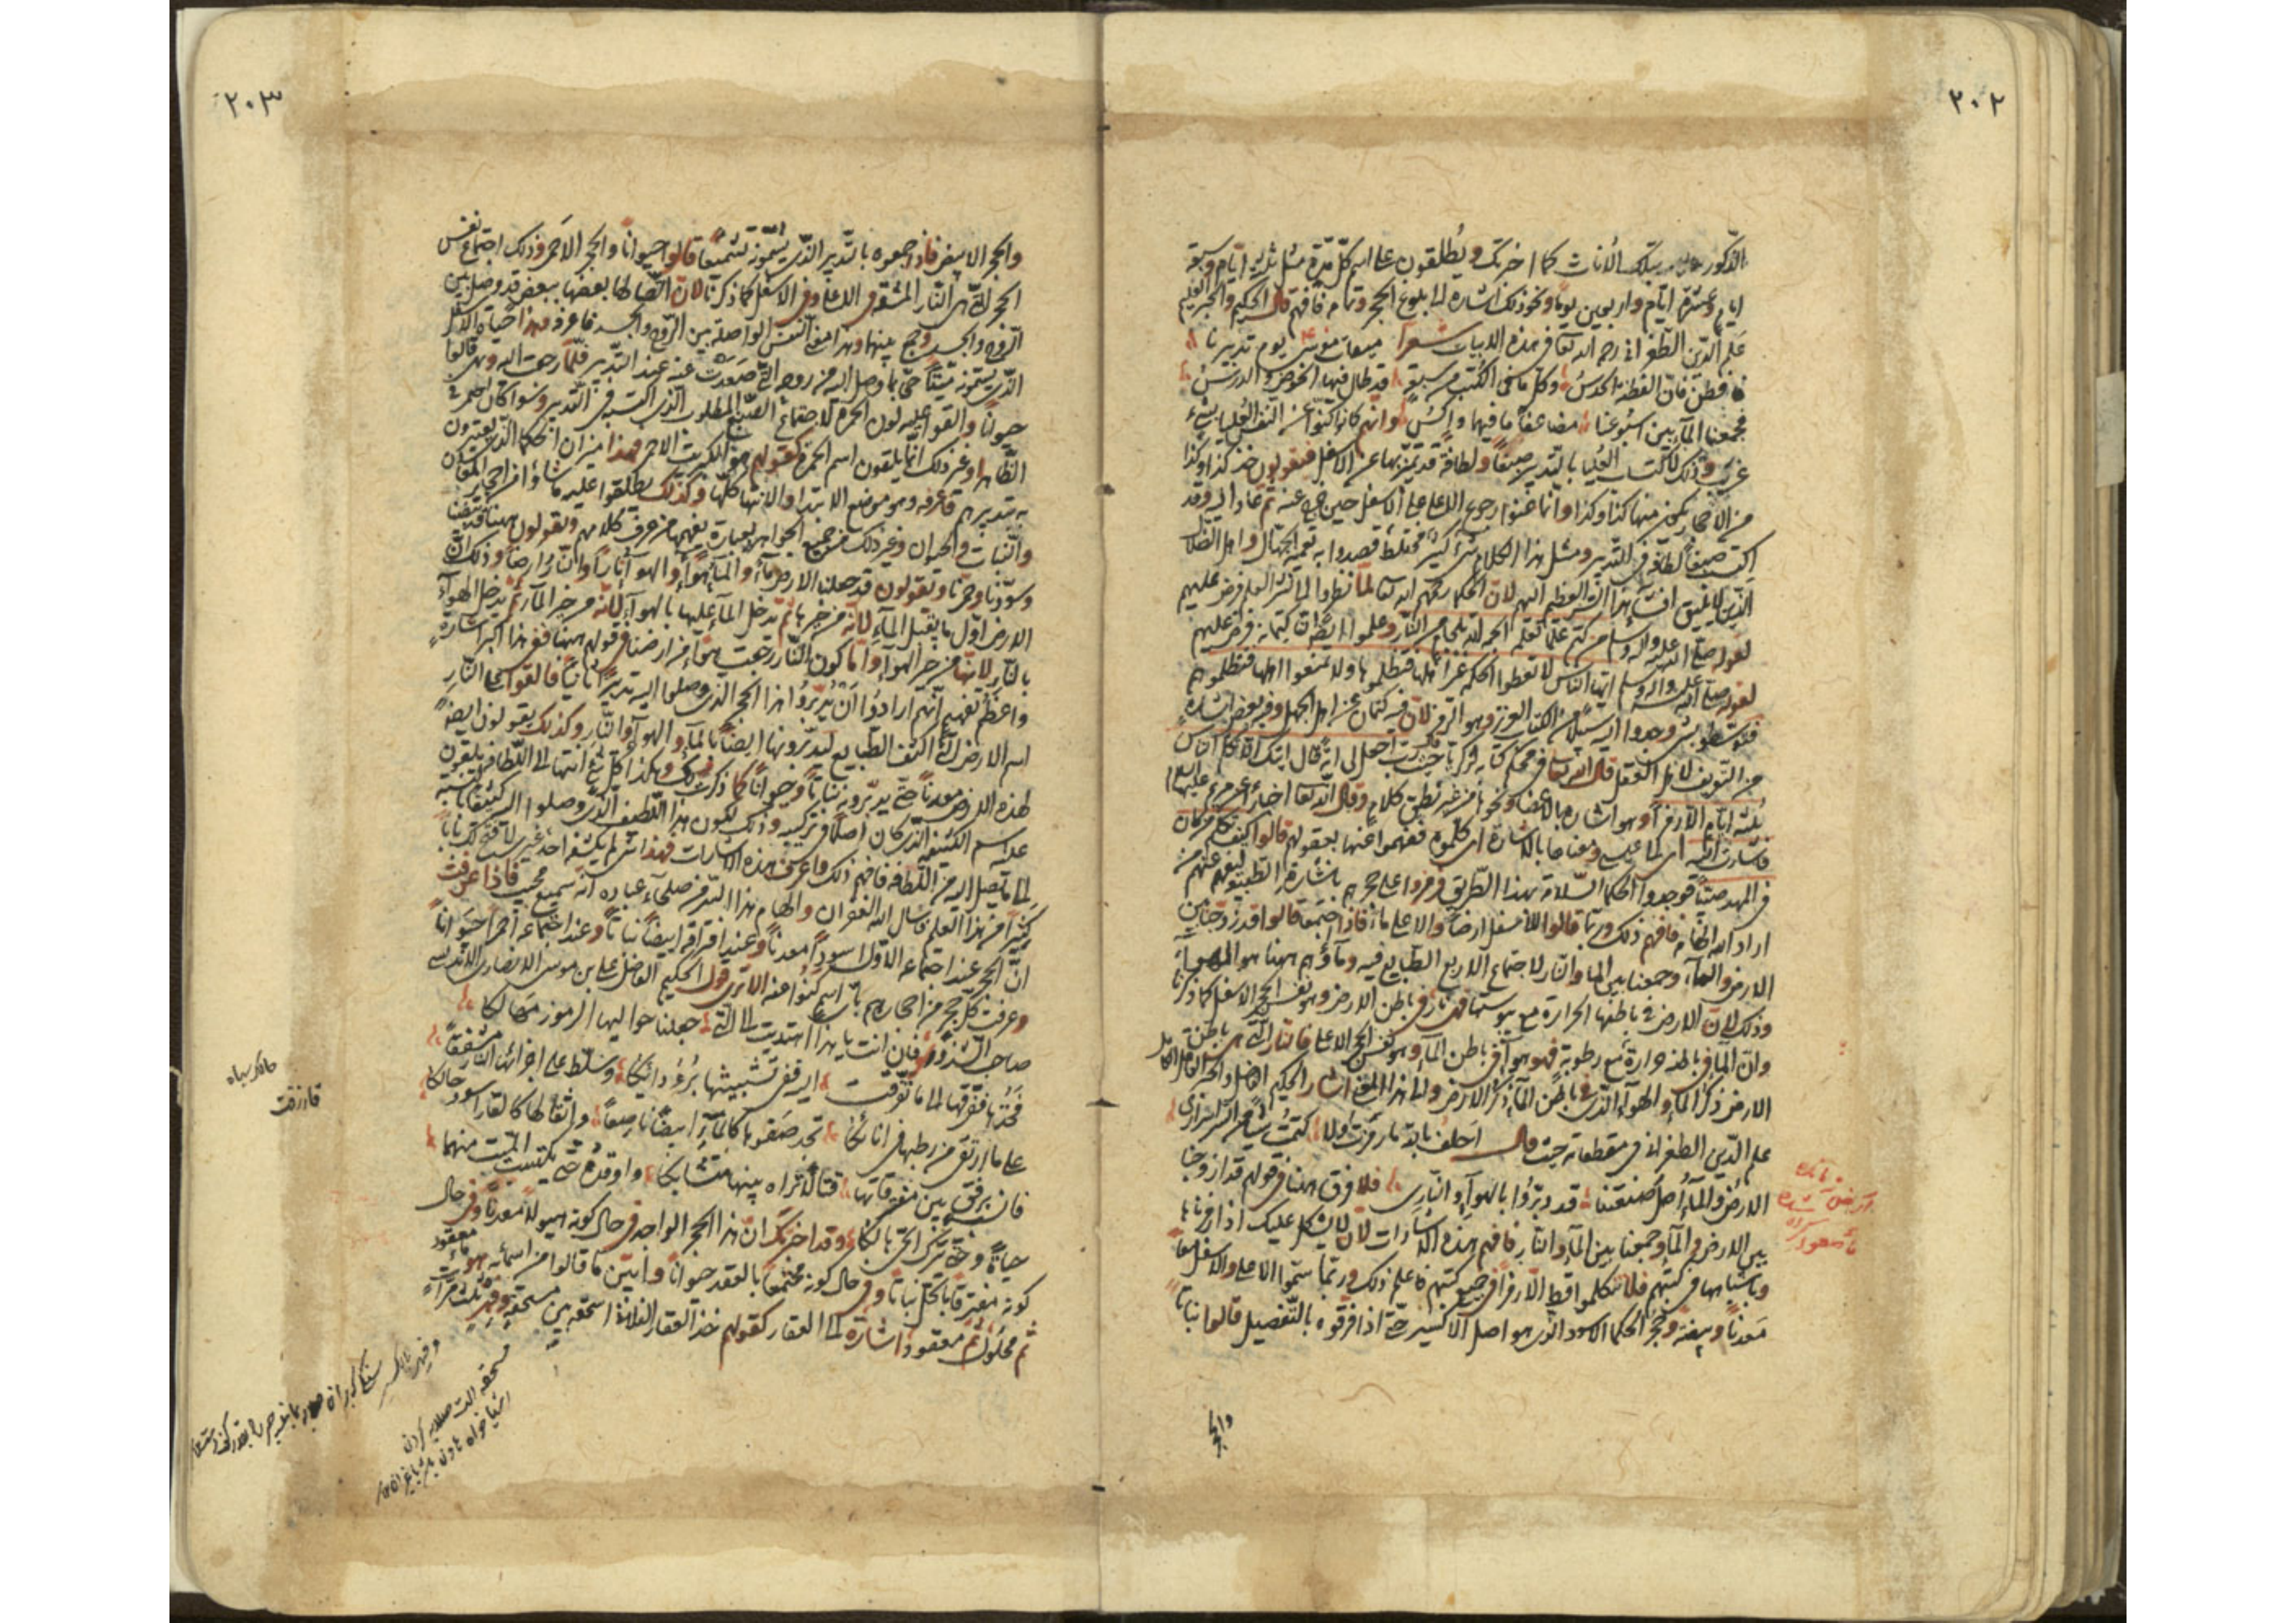 ٢٠٢
الذكور بتلك الاناث كما اخبرتك ويطلقون على اسم كل مدة مثل ثلثة ايام وسبعة
ايام وعشرة ايام واربعين يوما ونحو ذلك اشارة الى بلوغ الحجر وتمامه فافهم قال الحكيم والحبر العليم
علم الدين الطغرائي رحمه الله تعالى في هذه الابيات شعرا ميقات موسى يوم تدبيرنا
فافطن فان الفطنة الحدس وكل ما في الكتب من سبعة قد طال فيها الخوض والدرس
فجمعنا المآبين اسبوعنا مضاعفا ما فيها وانهم كانوا كنوا عن النفس العليا بشيء
غريب وذلك لما اكتسبت العليا بالتدبير صبغا ولطافة قد تميز بها عن الاسفل فيقولون خذ كذا وكذا
من الاحجار يكون منها كذا وكذا وانما عنوا رجوع الاعلى على الاسفل حين خرج عنه ثم عاد اليه وقد
اكتسب صبغا ولطافة في التدبير ومثل هذا الكلام شيء كثير مختلط قصدوا به تعمية الجهال واهل الضلال
الذين لا يليق افشاء هذا السر العظيم اليهم لان الحكماء رحمهم الله تعالى لما نظروا الى نشر العلم فرض عليهم
لقوله صلى الله عليه وآله وسلم من كتم علما نعلمه الجمه الله بلجام من النار وعلموا ايضا ان كتمانه فرض عليهم
لقوله صلى الله عليه وآله وسلم ايها الناس لا تعطوا الحكمة غير اهلها فتظلموها ولا تمنعوا اهلها فتظلموهم
فتوسطوا بين وجدوا اليه سبيلا من الكتاب العزيز وهو الرمز لان فيه كتمان عن اهل الجهل وفيه بعض اشارة
من التعريف لاهل العقل قال الله تعالى في محكم كتابه لزكريا حيث قال رب اجعل لي آية قال آيتك الا تكلم الناس
ثلثة ايام الا رمزا وهو اشارة بالاعضاء ونحوها من غير نطق كلام وقال الله تعالى اخبارا عن مريم عليها السلام
فاشارت اليه اي الى عيسى ومعناها بالاشارة اي كلموه ففهموا عنها بعقولهم قالوا كيف نكلم من كان
في المهد صبيا فوجدوا الحكماء السلامة بهذا الطريق فرمزوا على حجرهم باشارة الطبيعة ليفهم عنهم من
اراد الله الهامه فافهم ذلك وربما قالوا للاسفل ارضا والاعلى ماء فاذا اجتمعا قالوا قد زوجنا بين
الارض والماء وجمعنا بين الماء والنار لاجتماع الاربع الطبايع فيه وماؤهم ههنا هو الهواء
وذلك لان الارض في باطنها الحرارة مع يبوستها فهي نار في باطن الارض وهو نفس الحجر الاسفل كما ذكرنا
وان الماء في باطنه حرارة مع رطوبة فهو هواء في باطن الماء وهو نفس الحجر الاعلى فالنار التي هي باطن
الارض ذكر الماء والهواء الذي في باطن الماء ذكر الارض والى هذا المعنى اشار الحكيم الفاضل والحبر الكامل
علم الدين الطغرائي في مقطعاته حيث قال احلف بالله ما رمزت ولا كتمت شيئا من السرائر
الارض والماء اصل صنعتنا قد دبروا بالهواء والنار فلا فرق ههنا في قولهم قد ازوجنا
بين الارض والماء وجمعنا بين الماء والنار فافهم هذه الاشارات لان لا يشكل عليك اذا قرأتها
وباشباهها في كتبهم فلا تكلموا قط الا رمزا في جميع كتبهم فاعلم ذلك وربما سموا الاعلى والاسفل معا
معدنا وبيضة وحجر الحكماء الاسود الذي هو اصل الاكسير حتى اذا فرقوه بالتفصيل قالوا نباتا
والحجر
٢٠٣
والحجر الابيض فاذا جمعوه بالتدبير الذي يسمونه تشميعا قالوا حيوانا والحجر الاحمر وذلك اجتماع نفس
الحجر التي هي النار المشرقة في الاعلى وفي الاسفل كما ذكرنا لان اتصالها بعضها ببعض قد وصل بين
الروح والجسد وجمع بينهما وهذا معنى النفس الواصلة بين الروح والجسد فاعرفه وبهذا حياة الاسفل
الذي يسمونه ميتا حتى ما وصل اليه من روحه التي صعدت عنه عند التدبير فلما رجعت اليه وبه قالوا
حيوانا والقوا عليه لون الحمرة لاجتماع الصبغ المطلوب الذي اكتسبه في التدبير وسواء كان احمر في
الظاهر او غير ذلك انما يلقون اسم الحمرة كقولهم هو الكبريت الاحمر فهذا ميزان الحكماء الذي يعتبرون
به تدبيرهم فاعرفه وهو موضع الابتداء والانتهاء كلها وكذلك يطلقوا عليه ما شاؤا من احجار المعادن
والنبات والحيوان وغير ذلك من جميع الجواهر بعبارات يفهمها من عرف كلامهم ويقولون ههنا قد بيضنا
وسودنا وحمرنا ويقولون قد جعلنا الارض ماء والماء هواء والهواء نارا والنار ارضا وذلك ان
الارض اول ما يقبل الماء لانه من جزئها ثم تدخل الماء عليها بالهواء لانه من جزء الماء ثم يدخل الهواء
بالنار لانها من جزء الهواء واما كون النار رجعت هواء من ارضنا في قولهم ههنا فهو هذا اكبر اشارة
واعظم تفهيم انهم ارادوا ان يدبروا هذا الحجر الذي وصلوا اليه تدبيرا ثانيا فالقوا على النار
اسم الارض التي اكثف الطبايع ليدبرونها ايضا بالماء والهواء والنار وكذلك يقولون ايضا
لهذه الارض معدنا حتى يدبرونه نباتا وحيوانا كما ذكرت لك وهكذا كل شيء انتهى الى اللطافة يلقون
عليه اسم الكثيف الذي كان اصلا في تركيبه وذلك لكون هذا اللطيف الذي وصلوا اليه كثيفا بالنسبة
الى ما يصل اليه من اللطافة فافهم ذلك واعرف هذه الاشارات فهذا شيء لم يكشفه احد غيري لتفتح لك بابا
كثيرا من هذا العلم فاسال الله الغفران والهام هذا السر من صلحاء عباده انه سميع مجيب فاذا عرفت
ان الحجر عند اجتماعه الاول اسودا معدنا وعند افتراقه ابيضا نباتا وعند اجتماعه احمرا حيوانا
وعرفت كل حجر من احجارهم باي اسم كنوا عنه الا ترى قول الحكيم الفاضل علي بن موسى الانصاري الاندلسي
صاحب الشذور فان انت يا هذا اهتديت الى التي جعلنا حواليها الرموز مهالكا
فخذها ففرقها الى ما تفرقت اليه ففي تشبيثها برؤ دائكا وسلط على اجزائها النار مشفقا
على ما ارتقى من رطبها في انائكا تجد صفوها كالماء ابيضا ناصعا واثقالها كالقار اسود حالكا
فان ترفق بين مفترقاتها فتاله تراه بينها متشابكا واوقد حتى يكتسب الميت منهما
حياة وحتى يترك الحي هالكا وقد اخبرتك ان هذا الحجر الواحد في حال كونه هيولا معدنا وفي حال
كونه مفترقا بالحل نباتا وفي حال كونه مجتمعا بالعقد حيوانا وابين ما قالوا من اسمائه هو مائت معقود
ثم محلول ثم معقود اشارة الى العقار كقولهم خذ العقار الفلاني اسحقه بين مسحقة وفهر ثلث مرات
حالك سياه
قار زفت